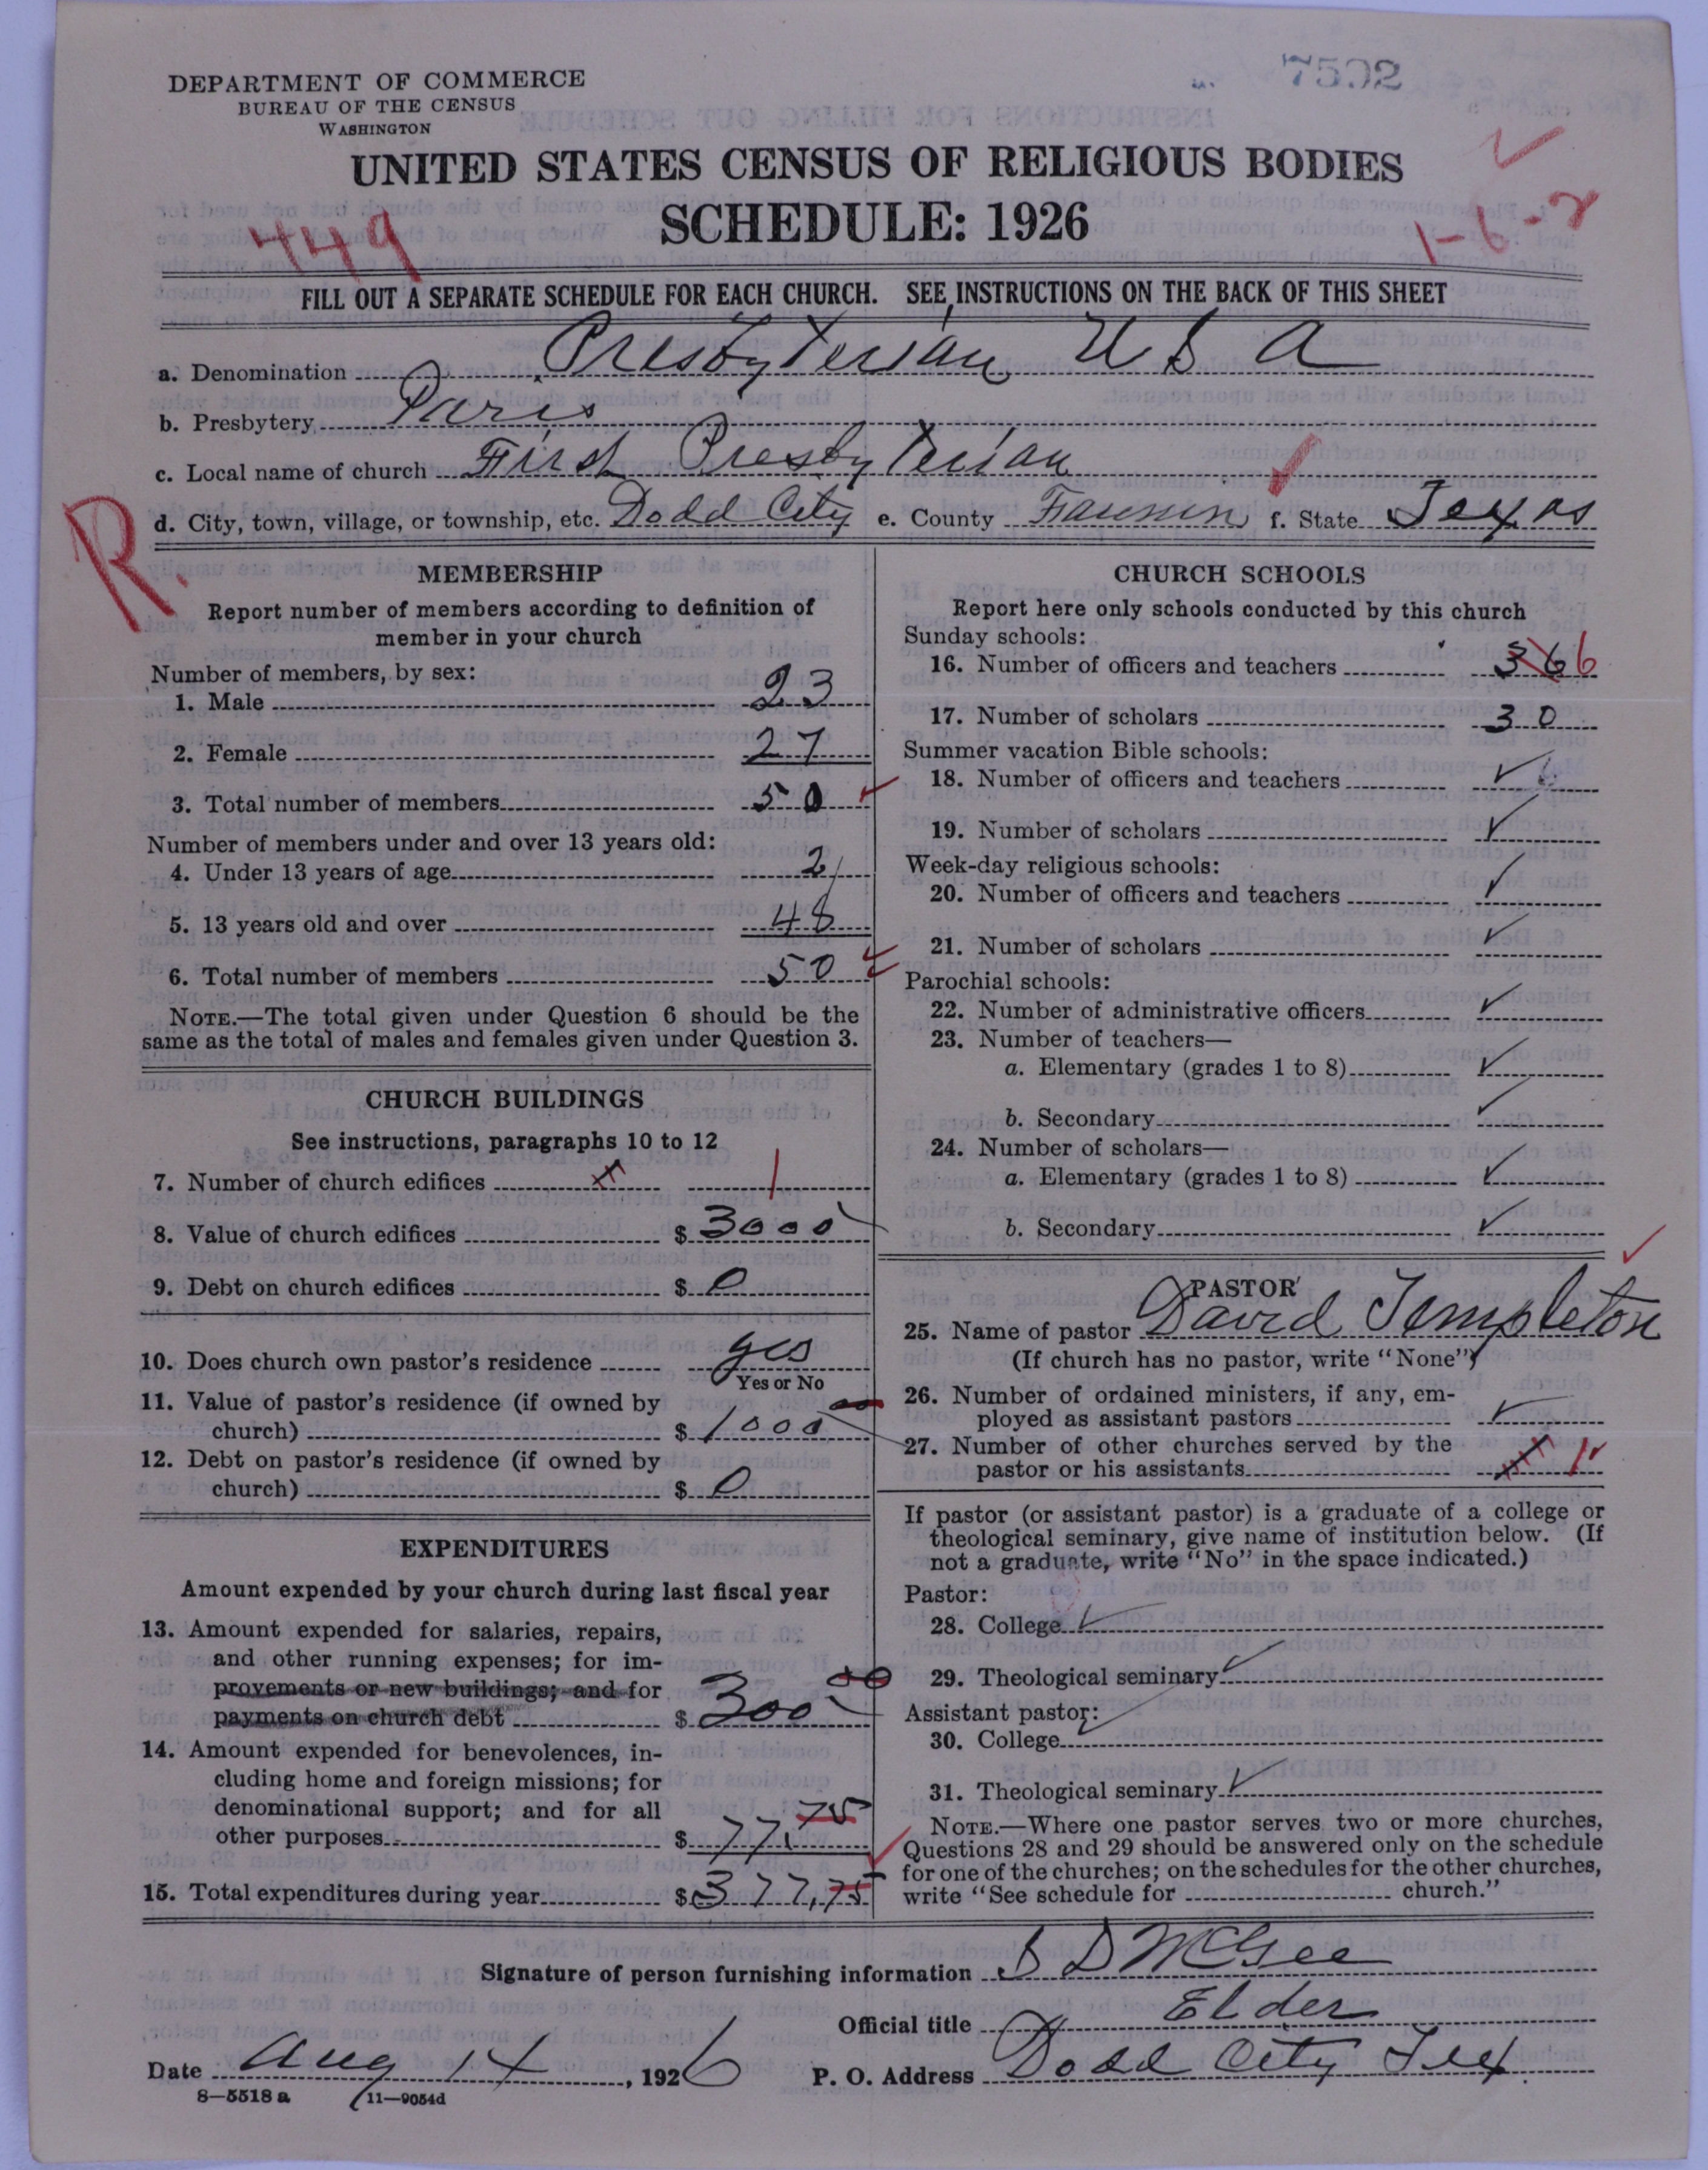 DEPARTMENT OF COMMERCE
BUREAU OF THE CENSUS
WASHINGTON
7502
UNITED STATES CENSUS OF RELIGIOUS BODIES
SCHEDULE: 1926
449
1-6-2
FILL OUT A SEPARATE SCHEDULE FOR EACH CHURCH. SEE INSTRUCTIONS ON THE BACK OF THIS SHEET
a. Denomination Presbyterian U S A
b. Presbytery Paris
c. Local name of church First Presbyterian
d. City, town, village, or township, etc. Dodd City e. County Fannin f. State Texas
R.
MEMBERSHIP
Report number of members according to definition of
member in your church
Number of members, by sex:
1. Male 23
2. Female 27
3. Total number of members 50
Number of members under and over 13 years old:
4. Under 13 years of age 2
5. 13 years old and over 48
6. Total number of members 50
NOTE.—The total given under Question 6 should be the
same as the total of males and females given under Question 3.
CHURCH BUILDINGS
See instructions, paragraphs 10 to 12
7. Number of church edifices 1
8. Value of church edifices $ 3000
9. Debt on church edifices $ 0
10. Does church own pastor's residence yes
Yes or No
11. Value of pastor's residence (if owned by
church) $ 1000 00
12. Debt on pastor's residence (if owned by
church) $ 0
EXPENDITURES
Amount expended by your church during last fiscal year
13. Amount expended for salaries, repairs,
and other running expenses; for im-
provements or new buildings; and for
payments on church debt $ 300 00
14. Amount expended for benevolences, in-
cluding home and foreign missions; for
denominational support; and for all
other purposes $ 77.75
15. Total expenditures during year $ 377,75
CHURCH SCHOOLS
Report here only schools conducted by this church
Sunday schools:
16. Number of officers and teachers 36 6
17. Number of scholars 30
Summer vacation Bible schools:
18. Number of officers and teachers ✓
19. Number of scholars ✓
Week-day religious schools:
20. Number of officers and teachers ✓
21. Number of scholars ✓
Parochial schools:
22. Number of administrative officers ✓
23. Number of teachers—
a. Elementary (grades 1 to 8) ✓
b. Secondary ✓
24. Number of scholars—
a. Elementary (grades 1 to 8) ✓
b. Secondary ✓
PASTOR
25. Name of pastor David Templeton
(If church has no pastor, write "None")
26. Number of ordained ministers, if any, em-
ployed as assistant pastors ✓
27. Number of other churches served by the
pastor or his assistants 1
If pastor (or assistant pastor) is a graduate of a college or
theological seminary, give name of institution below. (If
not a graduate, write "No" in the space indicated.)
Pastor:
28. College ✓
29. Theological seminary ✓
Assistant pastor:
30. College ✓
31. Theological seminary ✓
NOTE.—Where one pastor serves two or more churches,
Questions 28 and 29 should be answered only on the schedule
for one of the churches; on the schedules for the other churches,
write "See schedule for church."
Signature of person furnishing information S D McGee
Official title Elder
Date Aug 14, 1926 P. O. Address Dodd City Tex.
8—5518 a 11—9054d